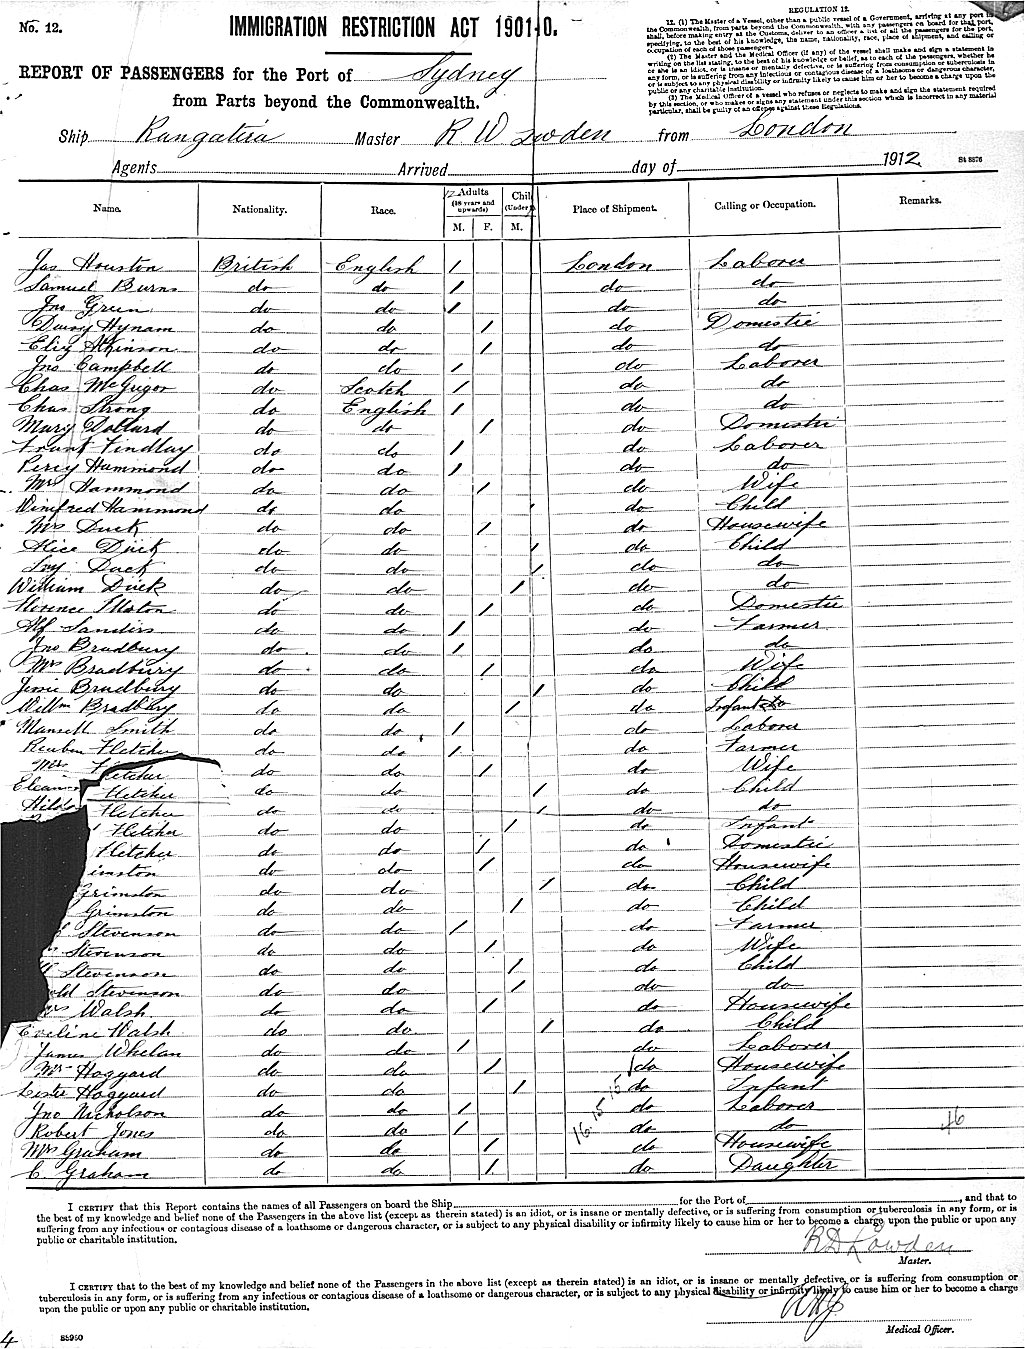 No. 12.
IMMIGRATION RESTRICTION ACT 1901-10.
REGULATION 12.
12. (1) The Master of a Vessel, other than a public vessel of a Government, arriving at any port in
the Commonwealth, from parts beyond the Commonwealth, with any passengers on board for that port,
shall, before making entry at the Customs, deliver to an officer a list of all the passengers for the port,
specifying, to the best of his knowledge, the name, nationality, race, place of shipment, and calling or
occupation of each of those passengers.
(2) The Master and the Medical Officer (if any) of the vessel shall make and sign a statement in
writing on the list stating, to the best of his knowledge or belief, as to each of the passengers, whether he
or she is an idiot, or is insane or mentally defective, or is suffering from consumption or tuberculosis in
any form, or is suffering from any infectious or contagious disease of a loathsome or dangerous character,
or is subject to any physical disability or infirmity likely to cause him or her to become a charge upon the
public or any charitable institution.
(3) The Medical Officer of a vessel who refuses or neglects to make and sign the statement required
by this section, or who makes or signs any statement under this section which is incorrect in any material
particular, shall be guilty of an offence against these Regulations.
REPORT OF PASSENGERS for the Port of Sydney
from Parts beyond the Commonwealth.
Ship Rangatira Master R W Lowden from London
Agents Arrived day of 1912 St 8876
Name. Nationality. Race. Adults (18 years and upwards) Chil (Under Place of Shipment. Calling or Occupation. Remarks.
M. F. M.
Jas Houston British English / London Laborer
Samuel Burns do do / do do
Jno Green do do / do do
Daisy Hynam do do / do Domestic
Eliz Atkinson do do / do do
Jno Campbell do do / do Laborer
Chas McGrigor do Scotch / do do
Chas Strong do English / do do
Mary Dollard do do / do Domestic
Frank Findlay do do / do Laborer
Percy Hammond do do / do do
Mrs Hammond do do / do Wife
Winifred Hammond do do / do Child
Mrs Duck do do / do Housewife
Alice Duck do do / do Child
Ivy Duck do do / do do
William Duck do do / do do
Florence do do / do Domestic
Alf Sanders do do / do Farmer
Jno Bradbury do do / do do
Mrs Bradbury do do / do Wife
Jessie Bradbury do do / do Child
Willm Bradbury do do / do Infant
Mansell Smith do do / do Laborer
Reuben Fletcher do do / do Farmer
Mrs Fletcher do do / do Wife
Eleanor Fletcher do do / do Child
Hilda Fletcher do do / do do
Fletcher do do / do Infant
Fletcher do do / do Domestic
imston do do / do Housewife
Grimston do do / do Child
Grimston do do / do Child
Stevenson do do / do Farmer
Stevenson do do / do Wife
Stevenson do do / do Child
old Stevenson do do / do do
Walsh do do / do Housewife
Eveline Walsh do do / do Child
James Whelan do do / do Laborer
Mrs Hagyard do do / do Housewife
Leslie Hagyard do do / do Infant
Jno Nicholson do do / do Laborer
Robert Jones do do / do do
16.15.15 46
Mrs Graham do do / do Housewife
C. Graham do do / do Daughter
I CERTIFY that this Report contains the names of all Passengers on board the Ship for the Port of , and that to
the best of my knowledge and belief none of the Passengers in the above list (except as therein stated) is an idiot, or is insane or mentally defective, or is suffering from consumption or tuberculosis in any form, or is
suffering from any infectious or contagious disease of a loathsome or dangerous character, or is subject to any physical disability or infirmity likely to cause him or her to become a charge upon the public or upon any
public or charitable institution.
R D Lowden
Master.
I CERTIFY that to the best of my knowledge and belief none of the Passengers in the above list (except as therein stated) is an idiot, or is insane or mentally defective, or is suffering from consumption or
tuberculosis in any form, or is suffering from any infectious or contagious disease of a loathsome or dangerous character, or is subject to any physical disability or infirmity likely to cause him or her to become a charge
upon the public or upon any public or charitable institution.
Medical Officer.
4